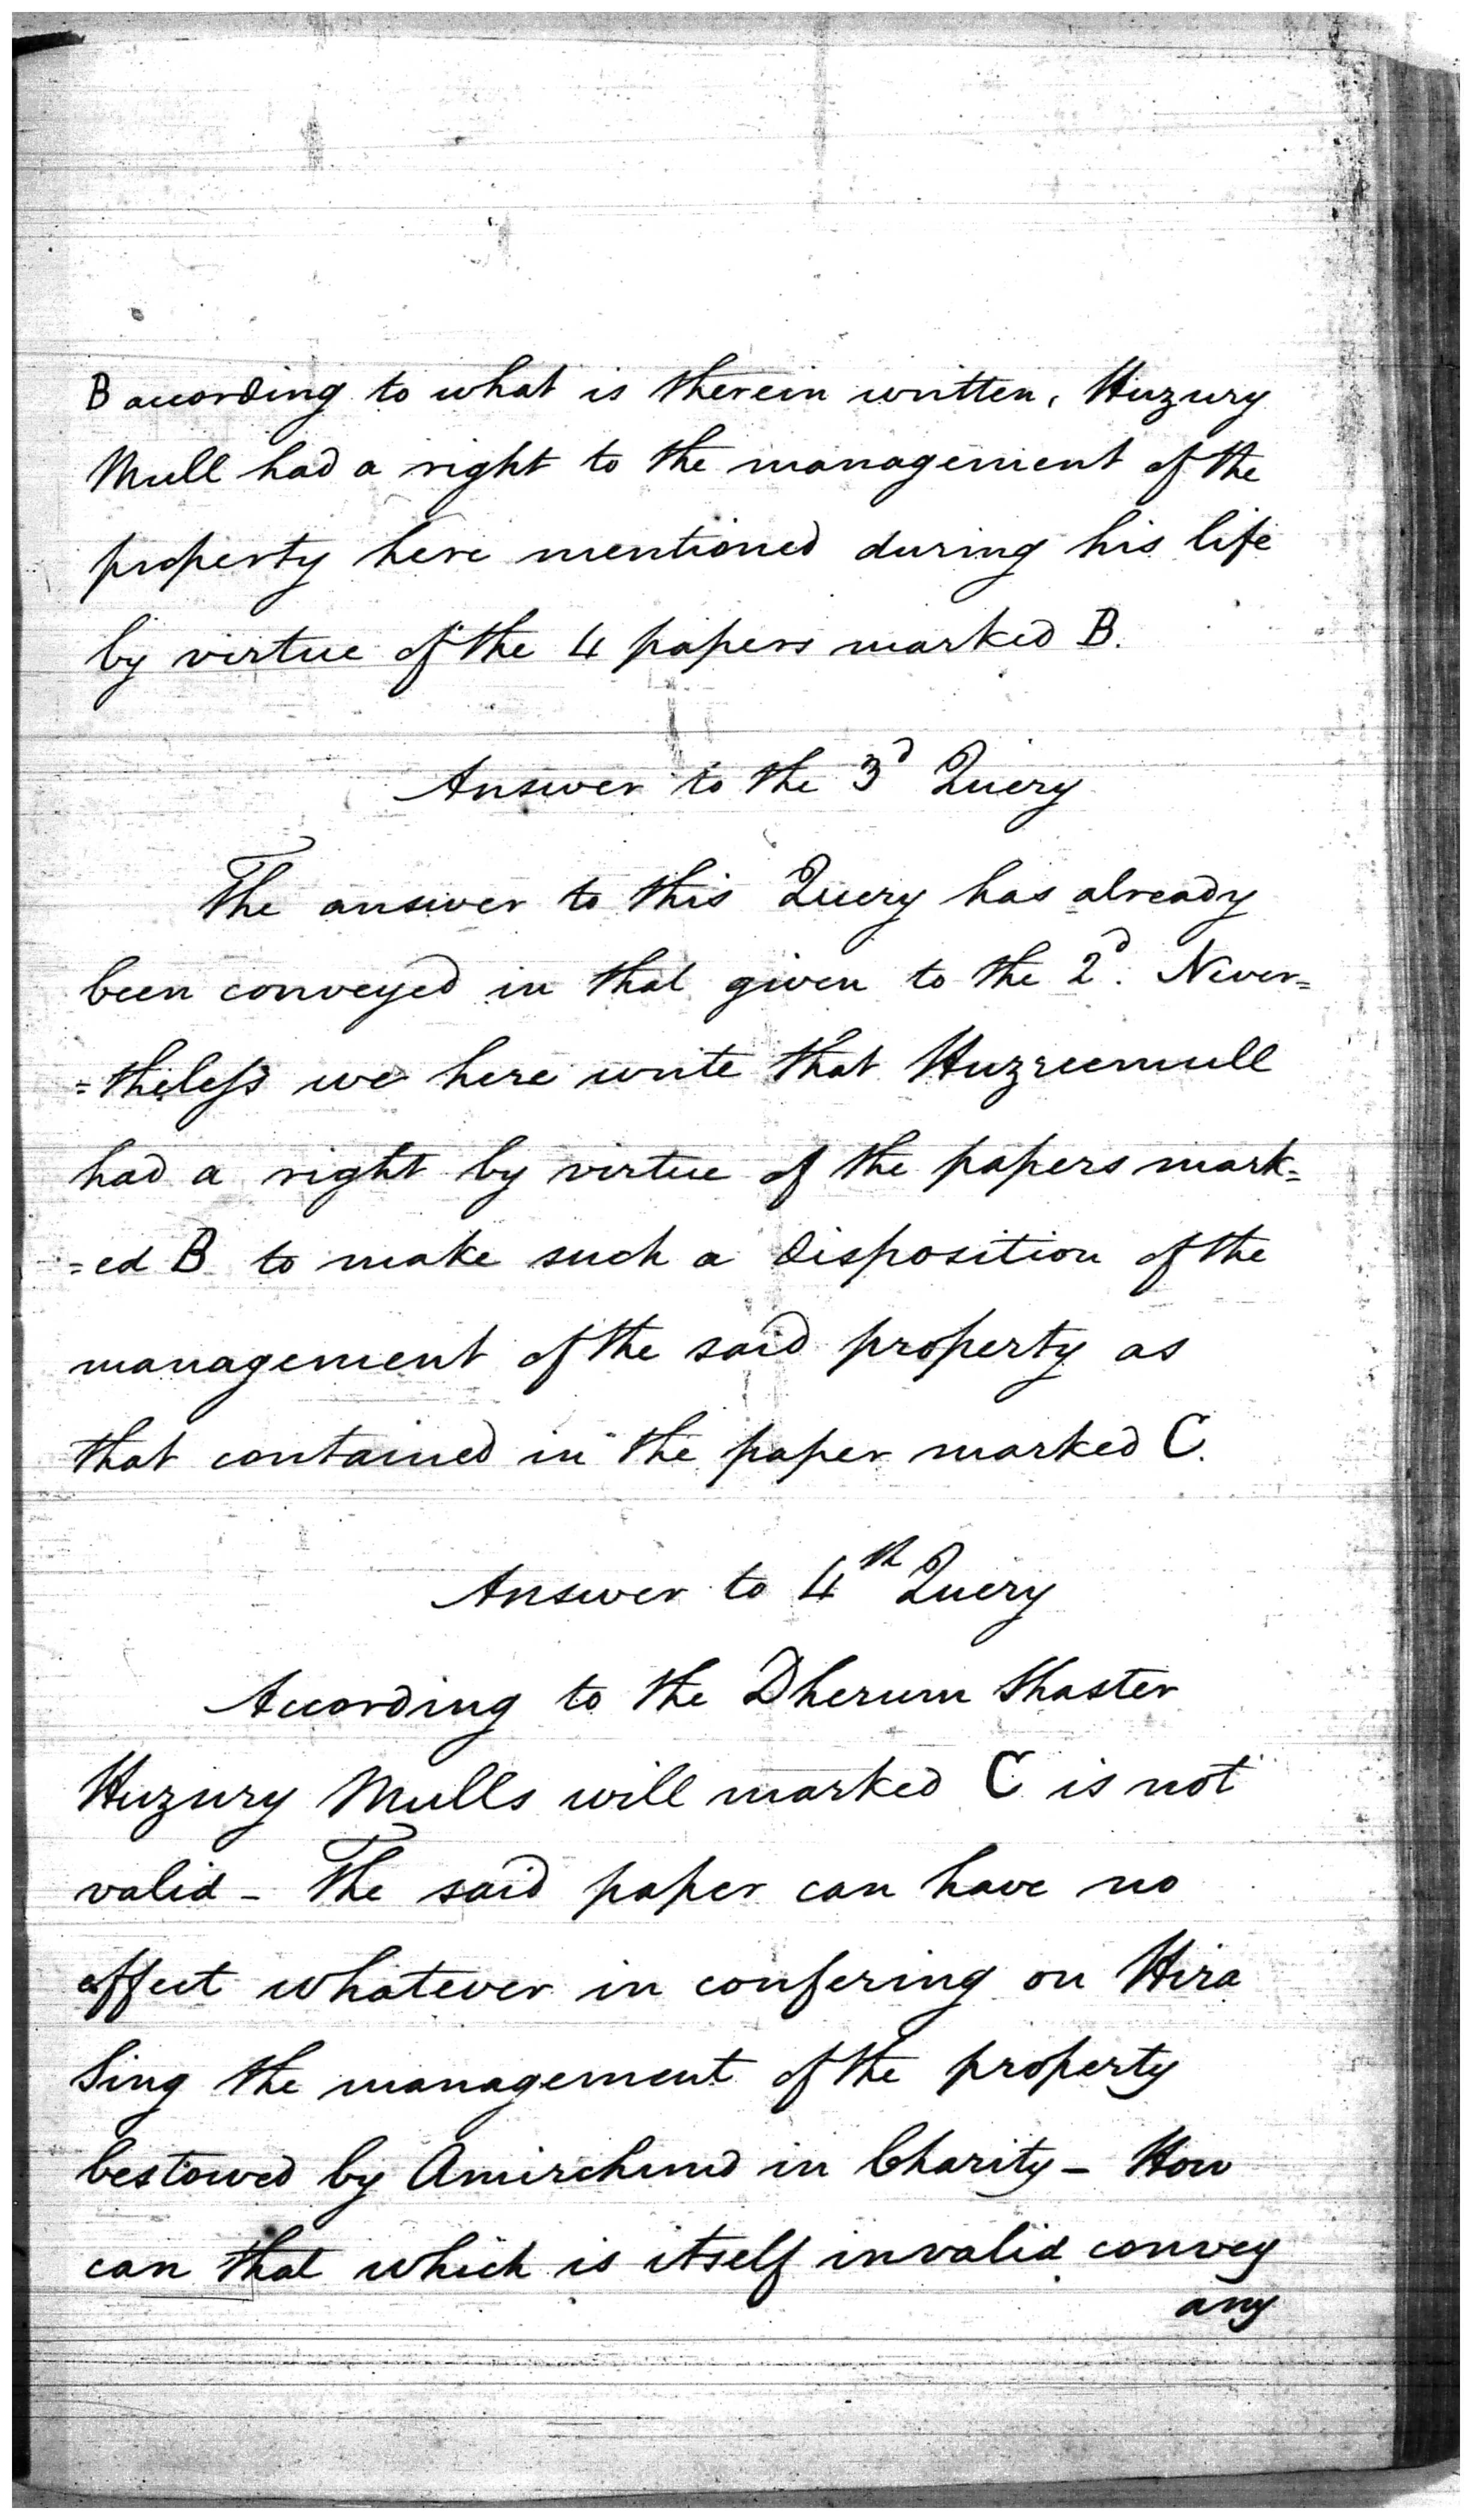 B according to what is therein written, Huzury
Mull had a right to the management of the
property here mentioned during his life
by virtue of the 4 papers marked B.
Answer to the 3d Query
The answer to this Query has already
been conveyed in that given to the 2d. Never=
=theless we here write that Huzreemull
had a right by virtue of the papers mark=
=ed B to make such a disposition of the
management of the said property as
that contained in the paper marked C.
Answer to 4th Query
According to the Dherum Shaster
Huzury Mulls will marked C is not
valid - The said paper can have no
effect whatever in confering on Hira
Sing the management of the property
bestowed by Amirchund in Charity - How
can that which is itself invalid convey
any